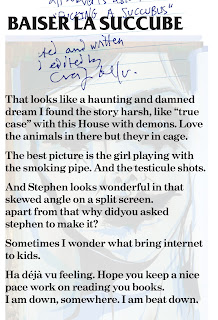 "FUCKING A SUCCUBUS"
BAISER LA SUCCUBE
and written
& edited by
That looks like a haunting and damned
dream I found the story harsh, like “true
case” with this House with demons. Love
the animals in there but theyr in cage.
The best picture is the girl playing with
the smoking pipe. And the testicule shots.
And Stephen looks wonderful in that
skewed angle on a split screen.
apart from that why didyou asked
stephen to make it?
Sometimes I wonder what bring internet
to kids.
Ha déjà vu feeling. Hope you keep a nice
pace work on reading you books.
I am down, somewhere. I am beat down.